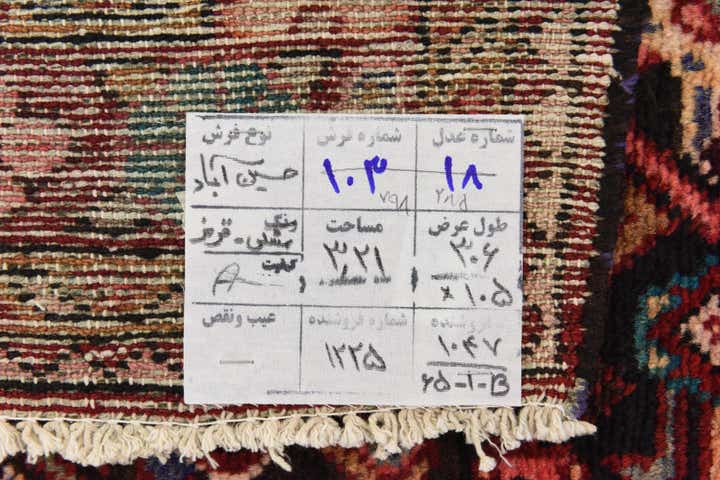 شماره عدل
۱۸
شماره فرش
۱۰۳
۷۹۸
نوع فرش
حسین آباد
طول عرض
۳۰۶
× ۱۰۵
مساحت
۳٫۲۱
رنگ
مشکی - قرمز
کیفیت
A
فروشنده
۱۰۴۷
۶۵-I-B
شماره فروشنده
۱۲۲۵
عیب ونقص
—